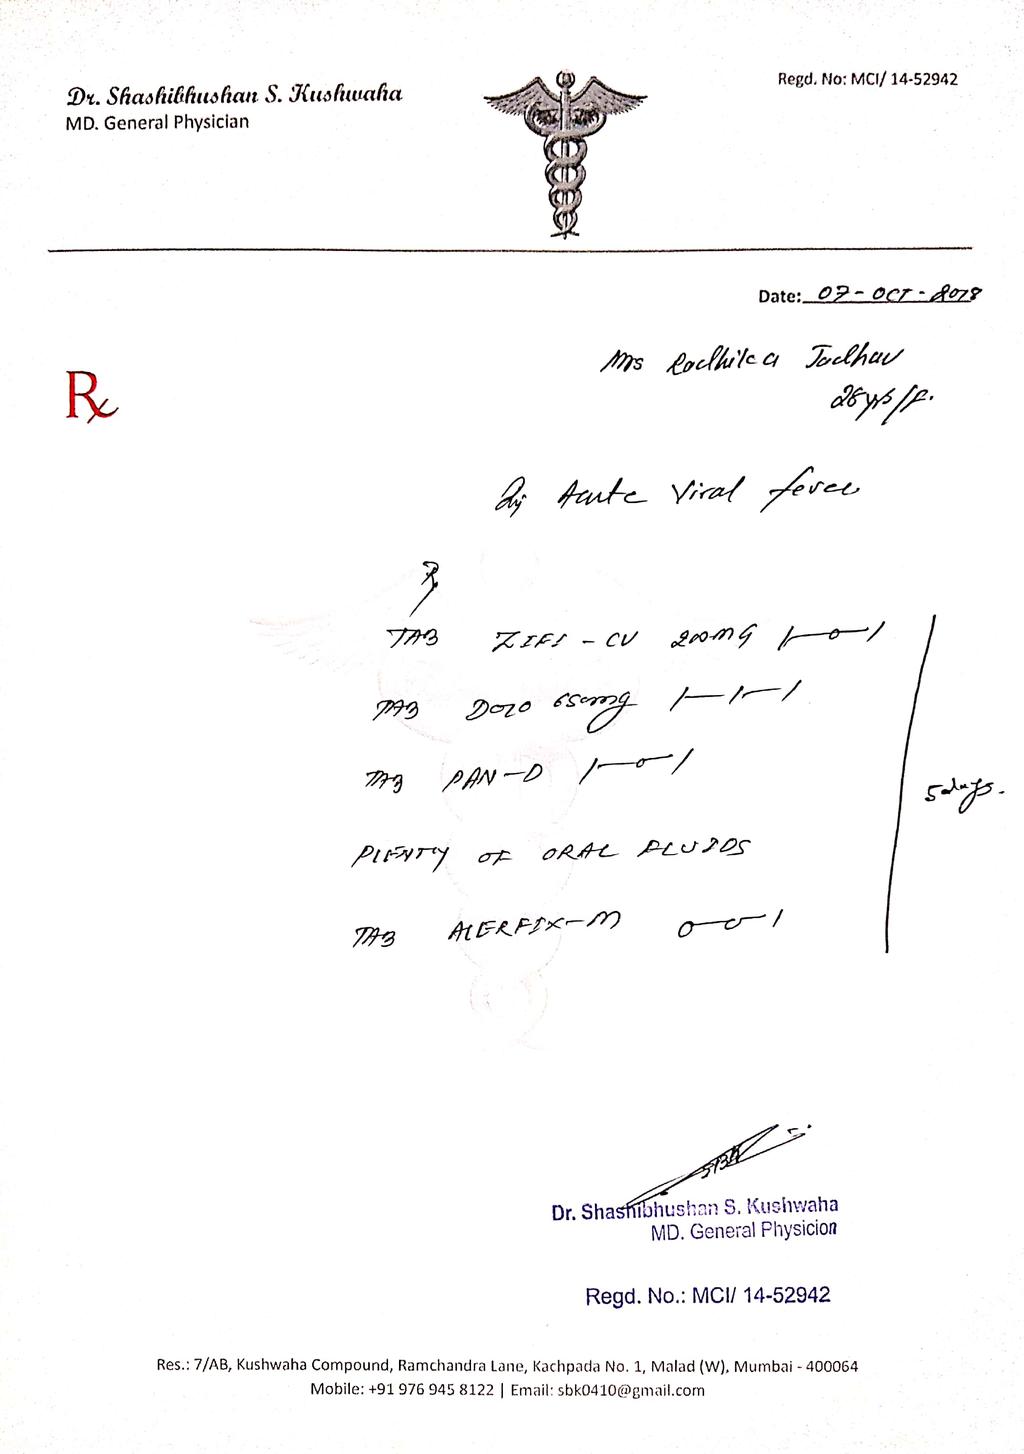 Dr. Shashibhushan S. Kushwaha
MD. General Physician
Regd. No: MCI/ 14-52942
Date: 07-OCT-2018
Rx
Mrs Radhika Jadhav
28yrs/F.
Acute Viral fever
Rx
TAB ZIFI-CV 200MG 1-0-1
TAB DOLO 650mg 1-1-1
TAB PAN-D 1-0-1
5days.
PLENTY OF ORAL FLUIDS
TAB ALERFIX-M 0-0-1
Dr. Shashibhushan S. Kushwaha
MD. General Physicion
Regd. No.: MCI/ 14-52942
Res.: 7/AB, Kushwaha Compound, Ramchandra Lane, Kachpada No. 1, Malad (W), Mumbai - 400064
Mobile: +91 976 945 8122 | Email: sbk0410@gmail.com